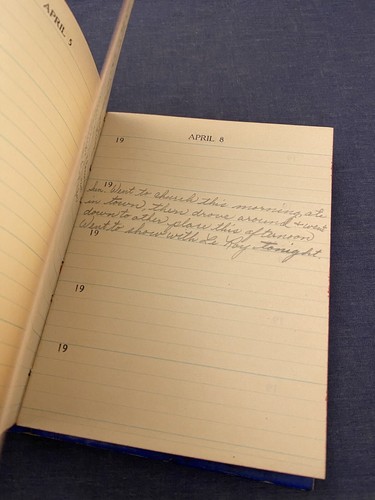 APRIL 5
APRIL 8
19
19
Sun. Went to church this morning, ate
in town, then drove around & went
down to other place this afternoon
19
Went to show with Le Roy tonight.
19
19